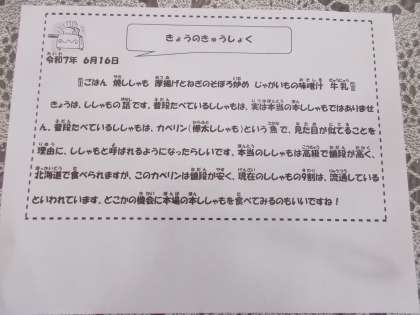 きょうのきゅうしょく
令和7年 6月16日
【ごはん 焼ししゃも 厚揚げとねぎのそぼろ炒め じゃがいもの味噌汁 牛乳】
きょうは、ししゃもの話です。普段たべているししゃもは、実は本当の本ししゃもではありませ
ん。普段たべているししゃもは、カペリン(樺太ししゃも)という魚で、見た目が似てることを
理由に、ししゃもと呼ばれるようになったらしいです。本当のししゃもは高級で値段が高く、
北海道で食べられますが、このカペリンは値段が安く、現在のししゃもの9割は、流通している
といわれています。どこかの機会に本場の本ししゃもを食べてみるのもいいですね！